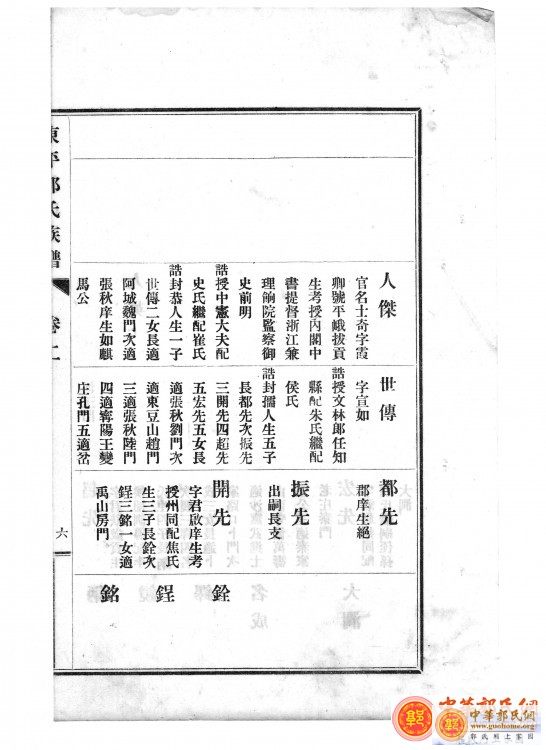 人傑
官名士奇字霞
卿號平峨拔貢
生考授內閣中
書提督浙江兼
理餉院監察御
史前明
誥授中憲大夫配
史氏繼配崔氏
誥封恭人生一子
世傳二女長適
阿城魏門次適
張秋庠生如麒
馬公
世傳
字宣如
誥授文林郎任知
縣配朱氏繼配
侯氏
誥封孺人生五子
長都先次振先
三開先四超先
五宏先五女長
適張秋劉門次
適東豆山趙門
三適張秋陸門
四適寧陽王變
庄孔門五適岔
都先
郡庠生絕
振先
出嗣長支
開先
字君啟庠生考
授州同配焦氏
生三子長銓次
鋥三銘一女適
禹山房門
銓
鋥
銘
東平郭氏族譜
卷二
六
中華郭氏網
中華郭氏網
www.guohome.org
郭氏網上家園